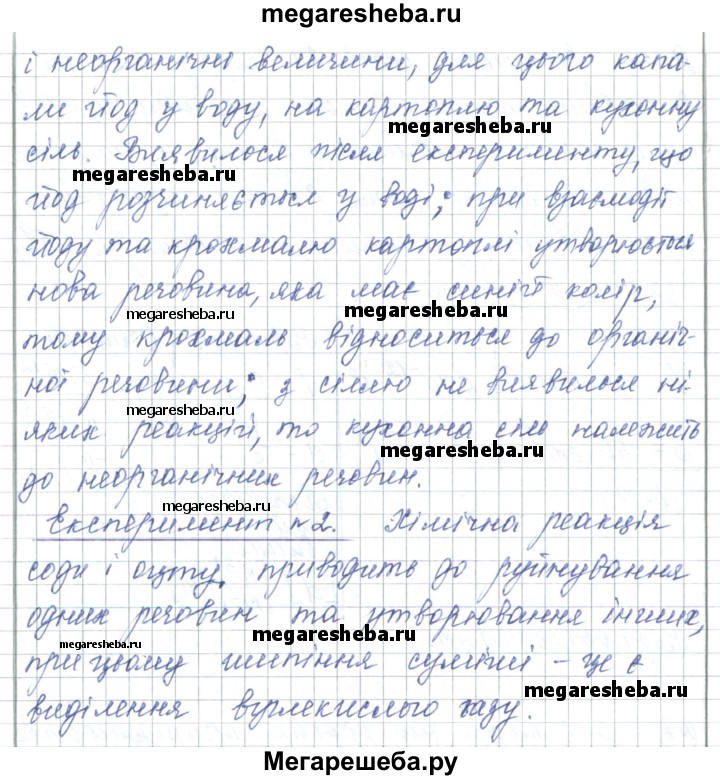 megaresheba.ru
і неорганічні величини, для цього капа-
ли йод у воду, на картоплю та кухонну
megaresheba.ru
сіль. Виявилося після експерименту, що
megaresheba.ru
йод розчиняється у воді; при взаємодії
йоду та крохмалю картоплі утворюється
нова речовина, яка має синій колір,
megaresheba.ru
megaresheba.ru
тому крохмаль відноситься до органіч-
ної речовини; з сіллю не виявилося ні-
megaresheba.ru
яких реакцій, то кухонна сіль належить
megaresheba.ru
до неорганічних речовин.
megaresheba.ru
Експеримент №2. Хімічна реакція
соди і оцту приводить до руйнування
одних речовин та утворювання інших,
megaresheba.ru
megaresheba.ru
при цьому шипіння суміші – це є
megaresheba.ru
виділення вуглекислого газу.
Мегарешеба.ру